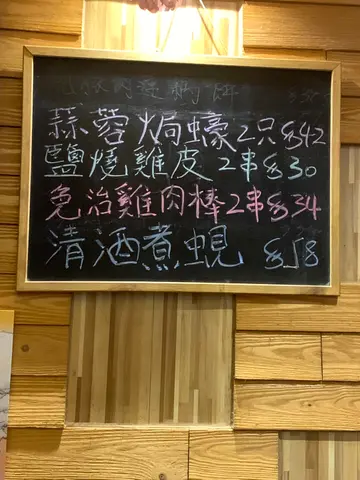 蒜蓉焗蠔2只$42
鹽燒雞皮2串$30
免治雞肉棒2串$34
清酒煮蜆 $58